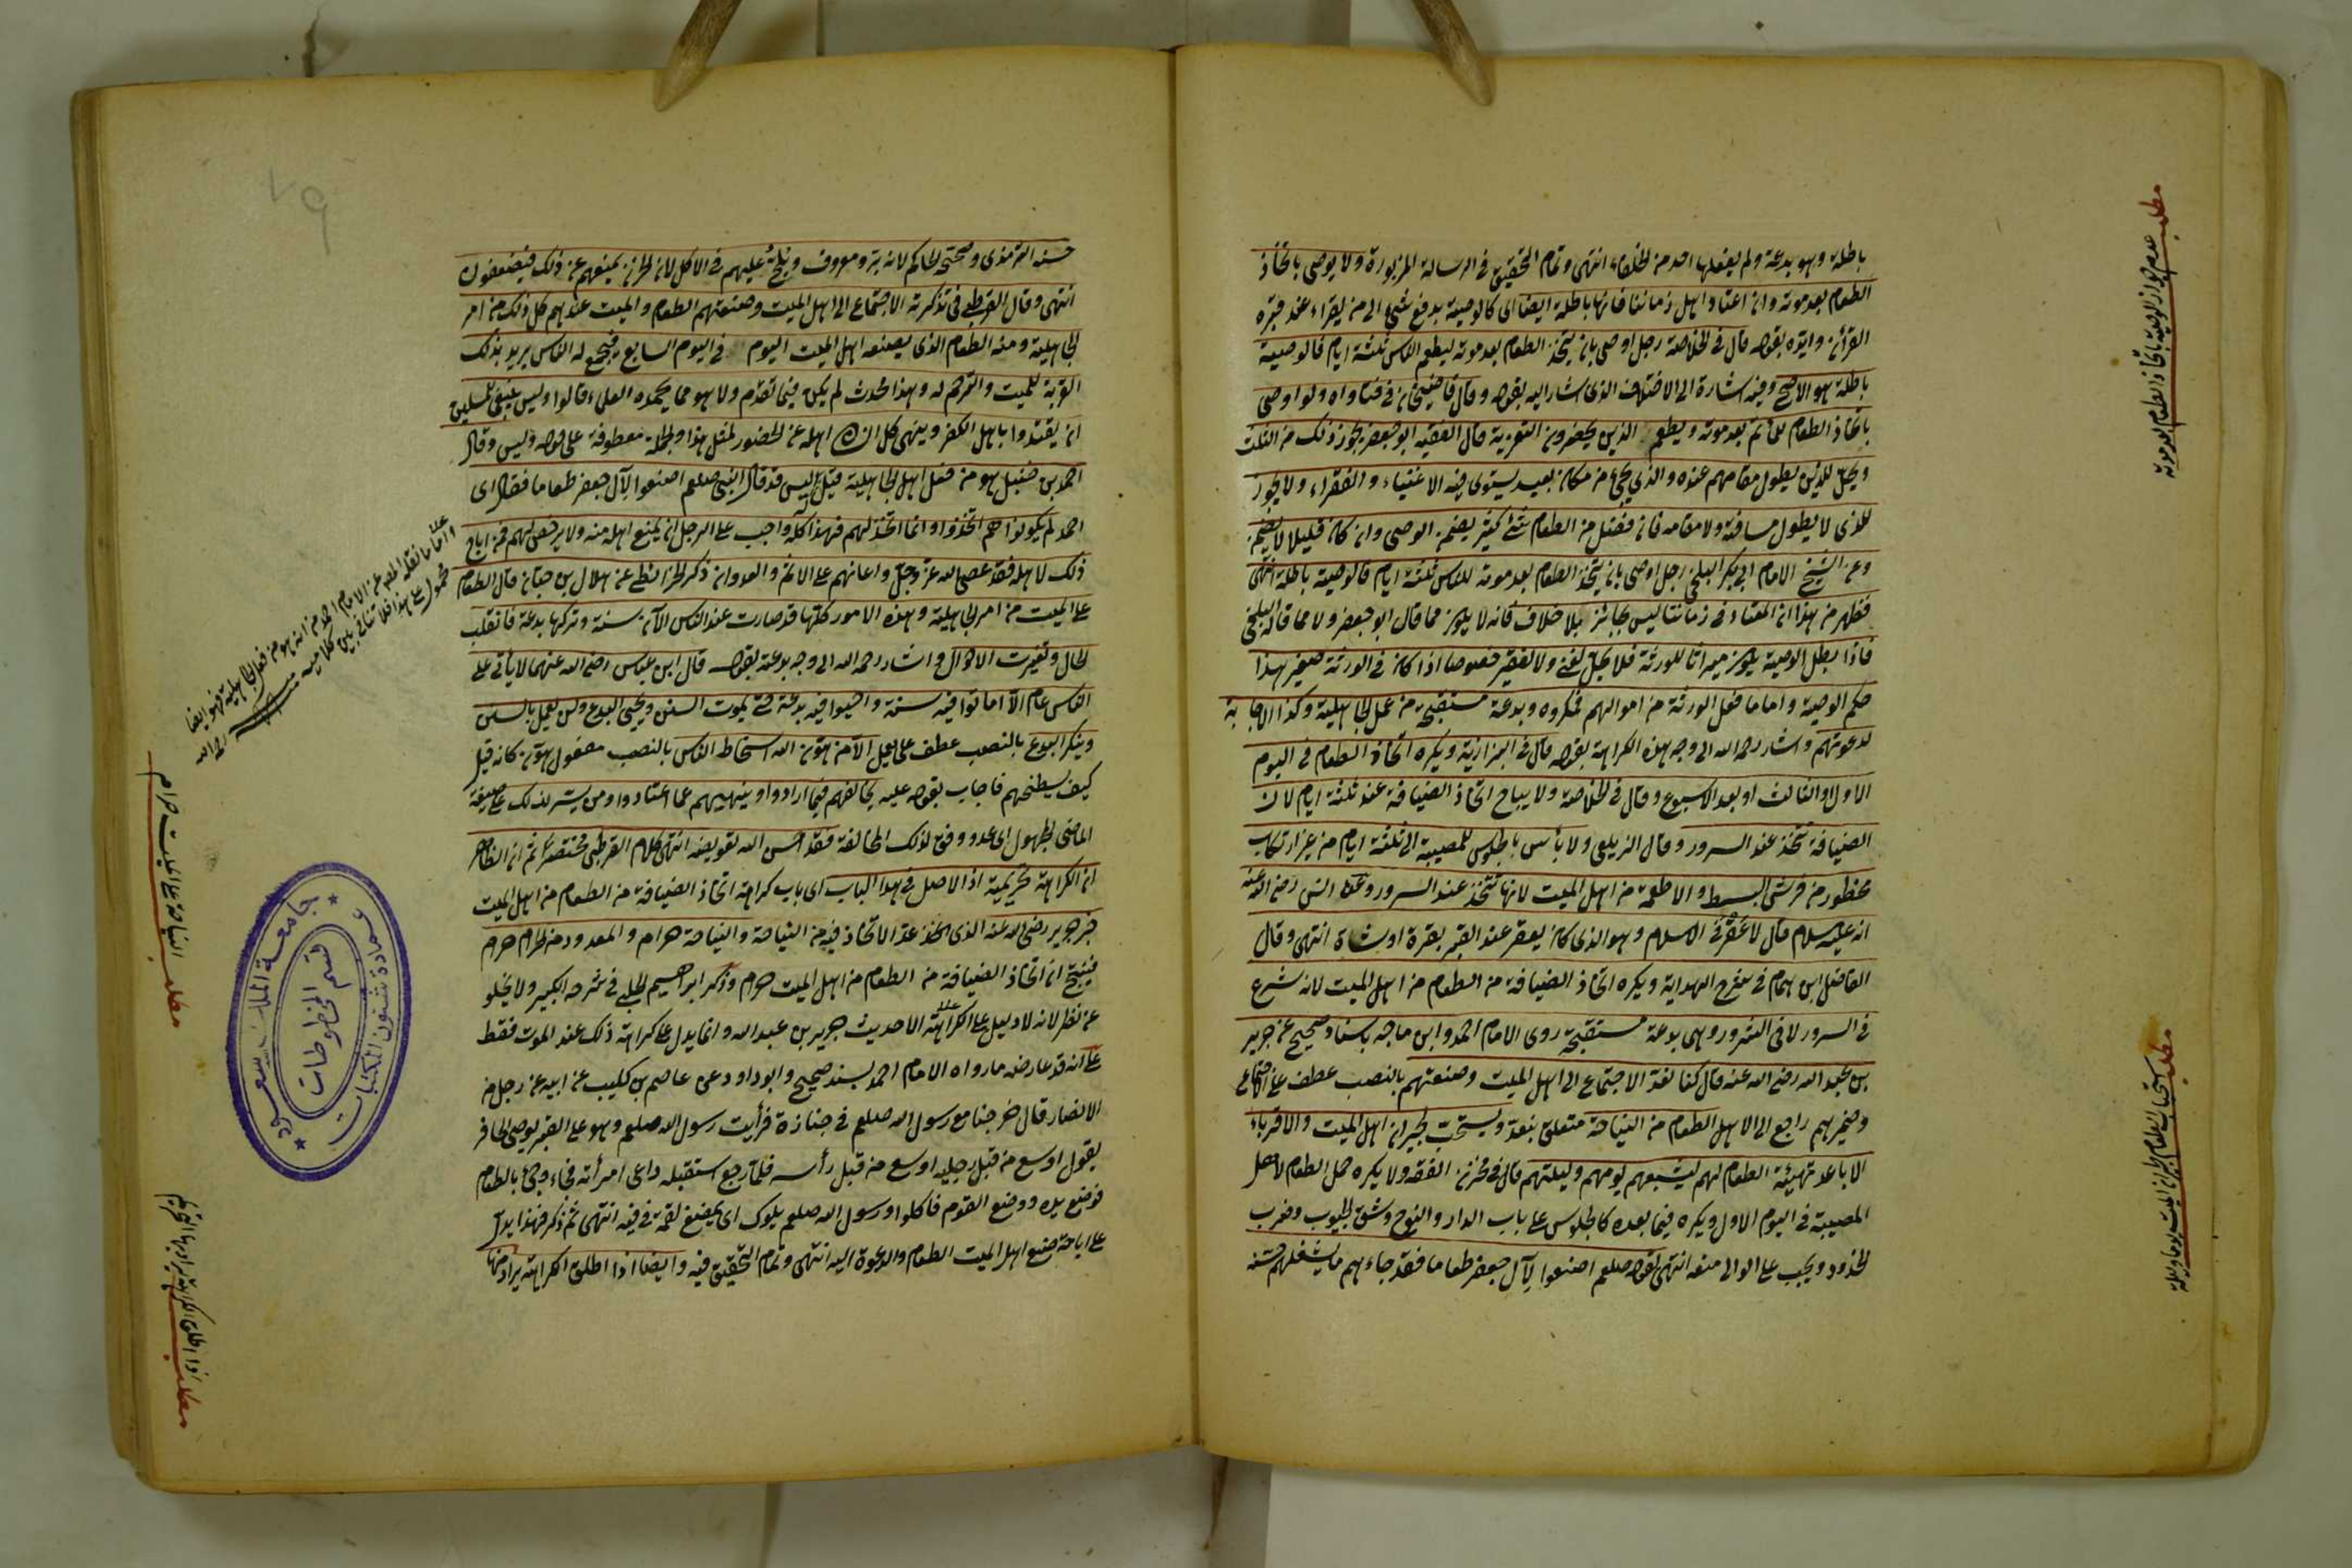 باطلة وهو بدعة ولم يفعلها احد من الخلفاء انتهى وتمام التحقيق في الرسالة المزبورة ولا يوصى باتخاذ
الطعام بعد موته وان اعتاد اهل زماننا فانها باطلة ايضا اى كالوصية بدفع شئ الى من يقراء عند قبره
القرآن وايّده بقوله قال في الخلاصة رجل اوصى بان يتخذ الطعام بعد موته ليطعم الناس ثلثة ايام فالوصية
باطلة هو الاصح وفيه اشارة الى الاختلاف الذى اشار اليه بقوله وقال قاضيخان في فتاواه ولو اوصى
باتخاذ الطعام للمأتم بعد موته ويطعم الذين يحضرون التعزية قال الفقيه ابو جعفر يجوز ذلك من الثلث
ويحل للذين يطول مقامهم عنده والذي يجئ من مكان بعيد يستوى فيه الاغنياء والفقراء ولا يجوز
للذى لا يطول مسافته ولا مقامه فان فضل من الطعام شئ كثير يضمن الوصى وان كان قليلا لا يضمن
وعن الشيخ الامام ابي بكر البلخي رجل اوصى بان يتخذ الطعام بعد موته للناس ثلثة ايام فالوصية باطلة انتهى
فظهر من هذا ان المعتاد في زماننا ليس بجائز بلا خلاف فانه لا يكون مما قال ابو جعفر ولا مما قاله البلخي
فاذا بطل الوصية يكون ميراثا للورثة فلا يحل لغني ولا لفقير خصوصا اذا كان في الورثة صغير هذا
حكم الوصية واما ما فعل الورثة من اموالهم فمكروه وبدعة مستقبحة من عمل الجاهلية وكذا الاجابة
لدعوتهم واشار رحمه الله الى وجه هذه الكراهة بقوله قال في البزازية ويكره اتخاذ الطعام في اليوم
الاول والثالث او بعد الاسبوع وقال في الخلاصة ولا يباح اتخاذ الضيافة عند ثلثة ايام لان
الضيافة تتخذ عند السرور وقال الزيلعي ولا بأس بالجلوس للمصيبة الى ثلثة ايام من غير ارتكاب
محظور من فرش البسط والاطعمة من اهل الميت لانها تتخذ عند السرور وعن انس رضي الله عنه
انه عليه السلام قال لا عقر في الاسلام وهو الذى كان يعقر عند القبر بقرة او شاة انتهى وقال
الفاضل ابن همام في شرح الهداية ويكره اتخاذ الضيافة من الطعام من اهل الميت لانه شرع
في السرور لا في الشرور وهي بدعة مستقبحة روى الامام احمد وابن ماجه باسناد صحيح عن جرير
بن عبد الله رضي الله عنه قال كنا نعد الاجتماع الى اهل الميت وصنعتهم بالنصب عطف على الاجتماع
وضميرهم راجع الى الاهل الطعام من النياحة متعلق بنعد ويستحب لجيران اهل الميت والاقرباء
الاباعد تهيئة الطعام لهم ليشبعهم يومهم وليلتهم قال في خزن الفقه ولا يكره حمل الطعام لاهل
المصيبة في اليوم الاول ويكره فيما بعده كالجلوس على باب الدار والنوح وشق الجيوب وضرب
الخدود ويجب على الوالى منعه انتهى لقوله صلعم اصنعوا لآل جعفر طعاما فقد جاءهم ما يشغلهم حسّنه
مطلب عدم جواز الوصية باتخاذ الطعام بعد موته
مطلب استحباب الطعام لجيران الميت يوما وليلة
حسنه الترمذى وصححه الحاكم لانه بر ومعروف ويلح عليهم في الاكل لان الحزن يمنعهم عن ذلك فيضعفون
انتهى وقال القرطبي في تذكرته الاجتماع الى اهل الميت وصنعتهم الطعام والميت عندهم كل ذلك من امر
الجاهلية ومنه الطعام الذى يصنعه اهل الميت اليوم في اليوم السابع فيجتمع له الناس يريد بذلك
القربة للميت والترحم له وهذا محدث لم يكن فيما تقدم ولا هو مما يحمده العلماء قالوا وليس ينبغي للمسلمين
ان يقتدوا باهل الكفر وينهى كل انسان اهله عن الحضور لمثل هذا والجملة معطوفة على قوله وليس وقال
احمد بن حنبل هو من فعل اهل الجاهلية قيل له اليس قد قال النبي صلعم اصنعوا لآل جعفر طعاما فقال اى
احمد لم يكونوا هم اتخذوا وانما اتخذ لهم فهذا كله واجب على الرجل ان يمنع اهله منه ولا يرخص لهم فمن اباح
ذلك لاهله فقد عصى الله عز وجل واعانهم على الاثم والعدوان ذكر الخرائطي عن هلال بن حبان قال الطعام
على الميت من امر الجاهلية وهذه الامور كلها قد صارت عند الناس الآن سنة وتركها بدعة فانقلب
الحال وتغيرت الاحوال واشار رحمه الله الى وجه بدعة بقوله قال ابن عباس رضي الله عنهما لا يأتي على
الناس عام الا اماتوا فيه سنة واحيوا فيه بدعة حتى يموت السنن ويحيى البدع ولن يعمل بالسنن
وينكر البدع بالنصب عطف على يعمل الا من هون الله اسخاط الناس بالنصب مفعول هون كانه قيل
كيف يسخطهم فاجاب بقوله عليه بمخالفتهم فيما ارادوا وينهيهم عما اعتادوا ومن يسر لذلك على صيغة
الماضي المجهول اى عد ووفق لذلك المخالفة فقد احسن الله تعويضه انتهى كلام القرطبي مختصرا ثم ان الظاهر
ان الكراهة تحريمية اذ الاصل في هذا الباب اى باب كراهة اتخاذ الضيافة من الطعام من اهل الميت
خبر جرير رضي الله عنه الذى اتخذ عد الاتخاذ فيه من النياحة والنياحة حرام والمعدود من الحرام حرام
فينتج ان اتخاذ الضيافة من الطعام من اهل الميت حرام وذكر ابراهيم الحلبي في شرحه الكبير ولا يخلو
عن نظر لانه لا دليل على الكراهة الا حديث جرير بن عبد الله وانما يدل على كراهة ذلك عند الموت فقط
على انه قد عارضه ما رواه الامام احمد بسند صحيح وابو داود عن عاصم بن كليب عن ابيه عن رجل من
الانصار قال خرجنا مع رسول الله صلعم في جنازة فرأيت رسول الله صلعم وهو على القبر يوصى الحافر
بقول اوسع من قبل رجليه اوسع من قبل رأسه فلما رجع استقبله داعى امرأته فجاء وجئ بالطعام
فوضع يده ووضع القوم فاكلوا ورسول الله صلعم يلوك اى يمضغ لقمة في فيه انتهى ثم ذكر فهذا يدل
على اباحة صنع اهل الميت الطعام والدعوة اليه انتهى وتمام التحقيق فيه وايضا اذا اطلق الكراهة يراد منها
واما ما نقله المص عن الامام احمد من انه هو من فعل الجاهلية فهو ايضا
محمول على هذا فلا تنافي بين كلاميه منه رحمه الله
مطلب النياحة على الميت حرام
مطلب اذا اطلق الكراهة يراد بها التحريم
٧٩
جامعة الملك سعود
عمادة شئون المكتبات
قسم المخطوطات